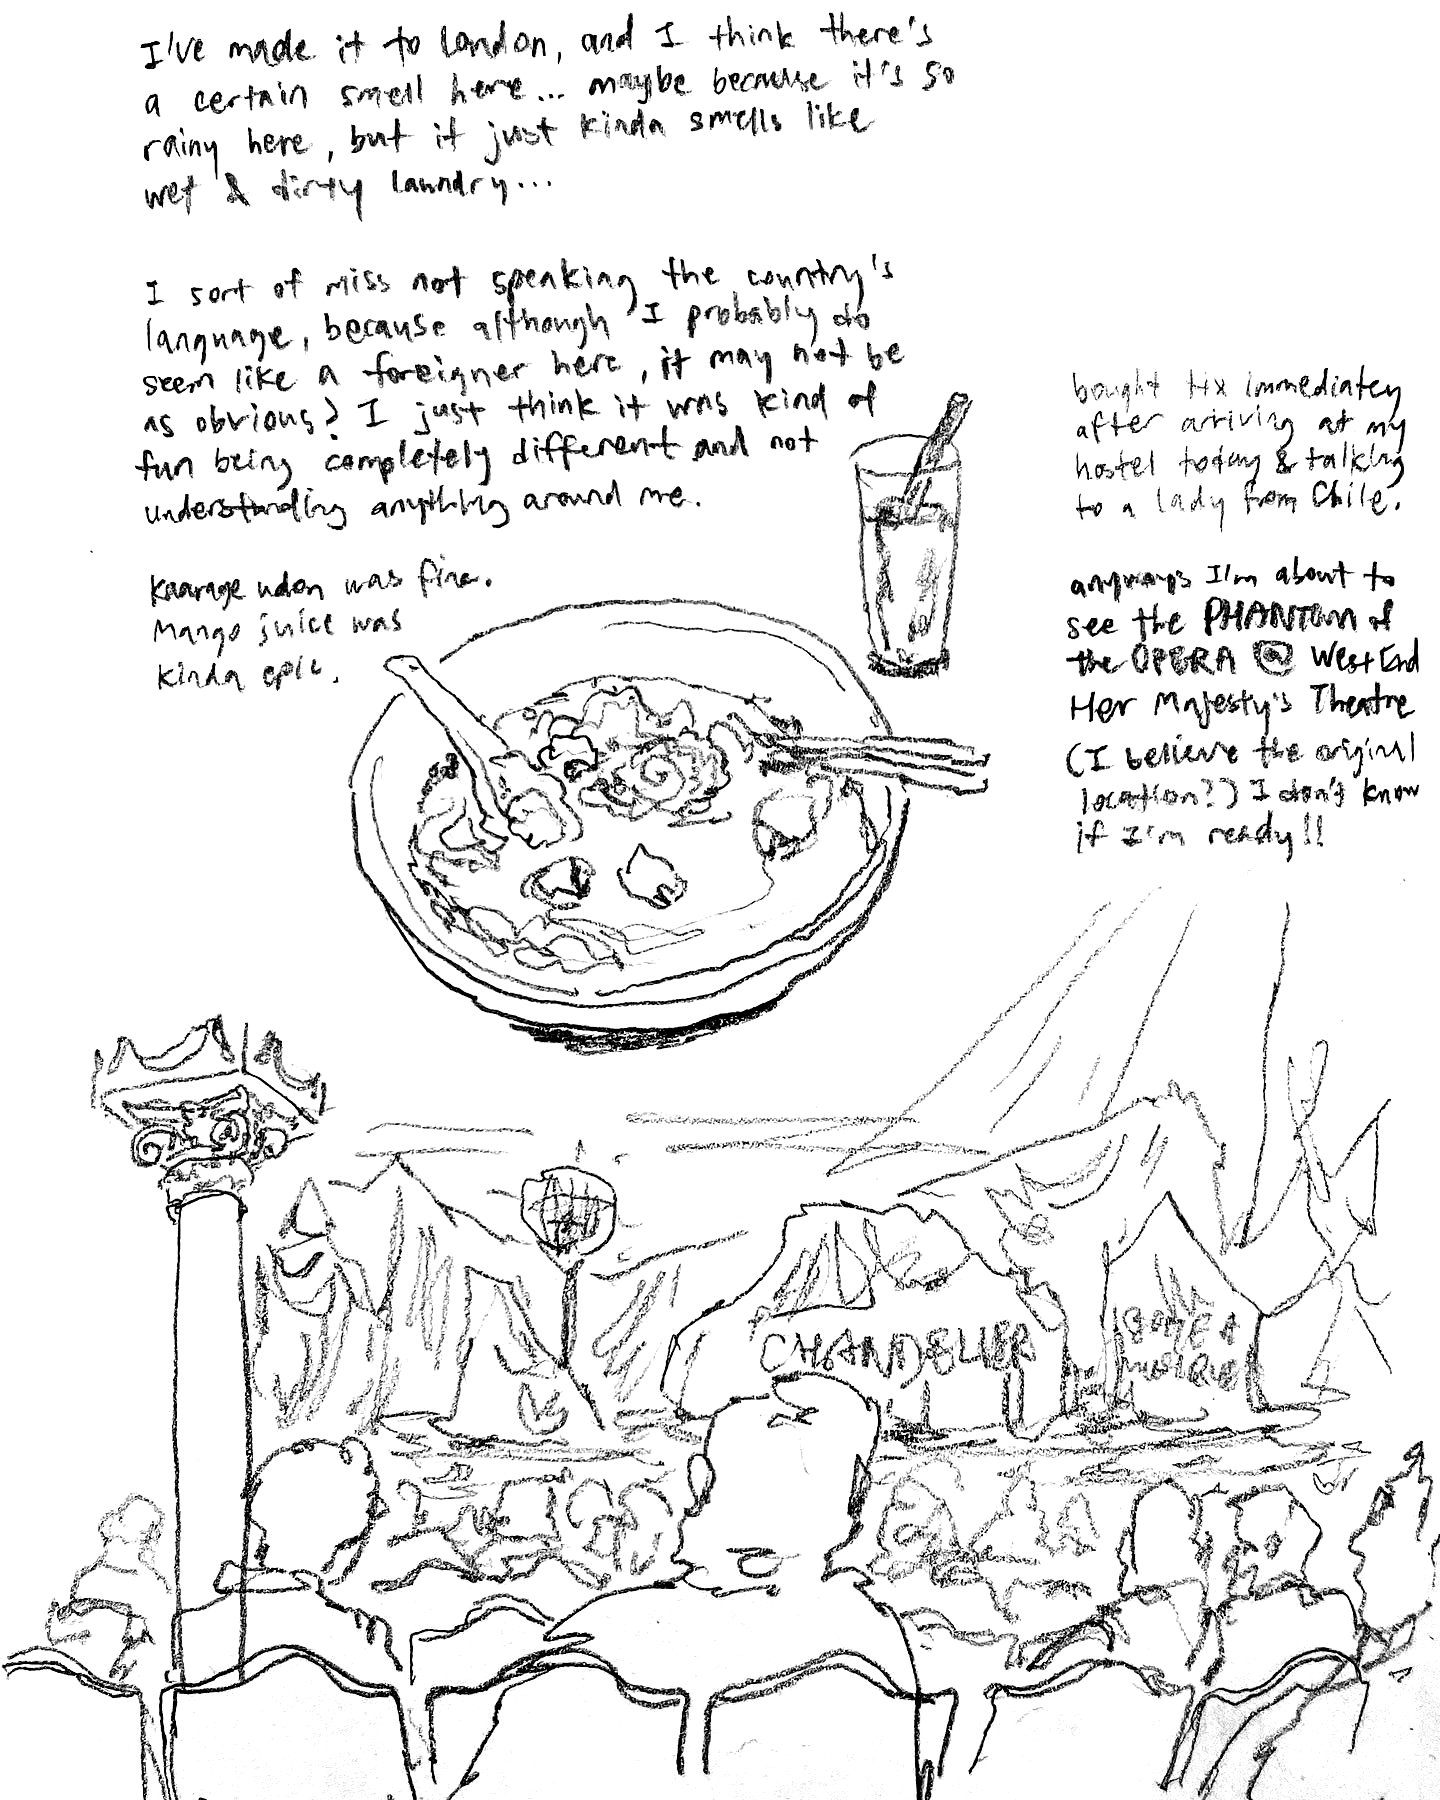 I've made it to London, and I think there's
a certain smell here... maybe because it's so
rainy here, but it just kinda smells like
wet & dirty laundry...
I sort of miss not speaking the country's
language, because although I probably do
seem like a foreigner here, it may not be
as obvious? I just think it was kind of
fun being completely different and not
understanding anything around me.
Kaarage udon was fine.
Mango juice was
kinda epic.
bought tix immediately
after arriving at my
hostel today & talking
to a lady from Chile.
anyways I'm about to
see the PHANTOM of
the OPERA @ West End
Her Majesty's Theatre
(I believe the original
location?) I don't know
if I'm ready!!
CHANDELIER